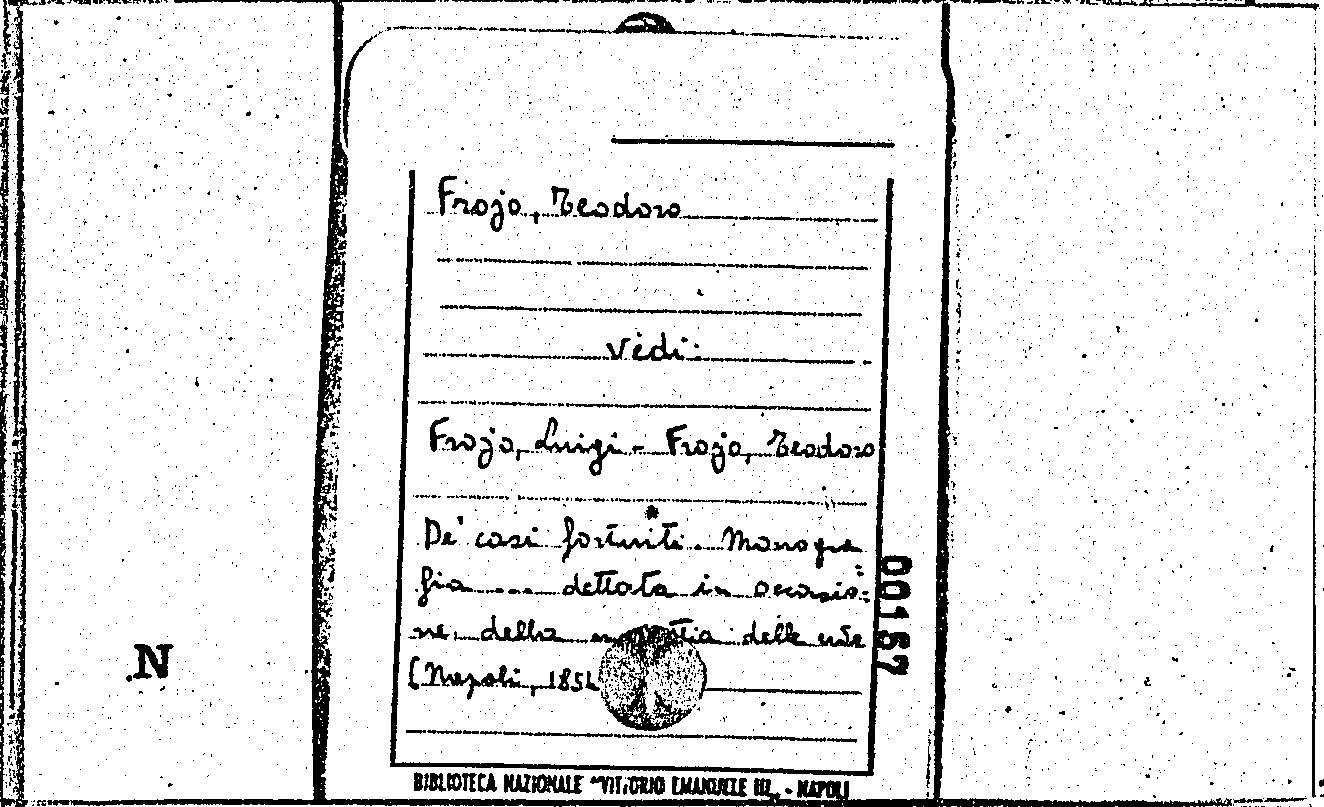 Frojo, Teodoro
Vedi:
Frojo, Luigi - Frojo, Teodoro
De' casi fortuiti. Monogra=
fia .... dettata in occasio=
ne della malattia delle uve
(Napoli, 185
00167
N
BIBLIOTECA NAZIONALE "VITTORIO EMANUELE III" - NAPOLI